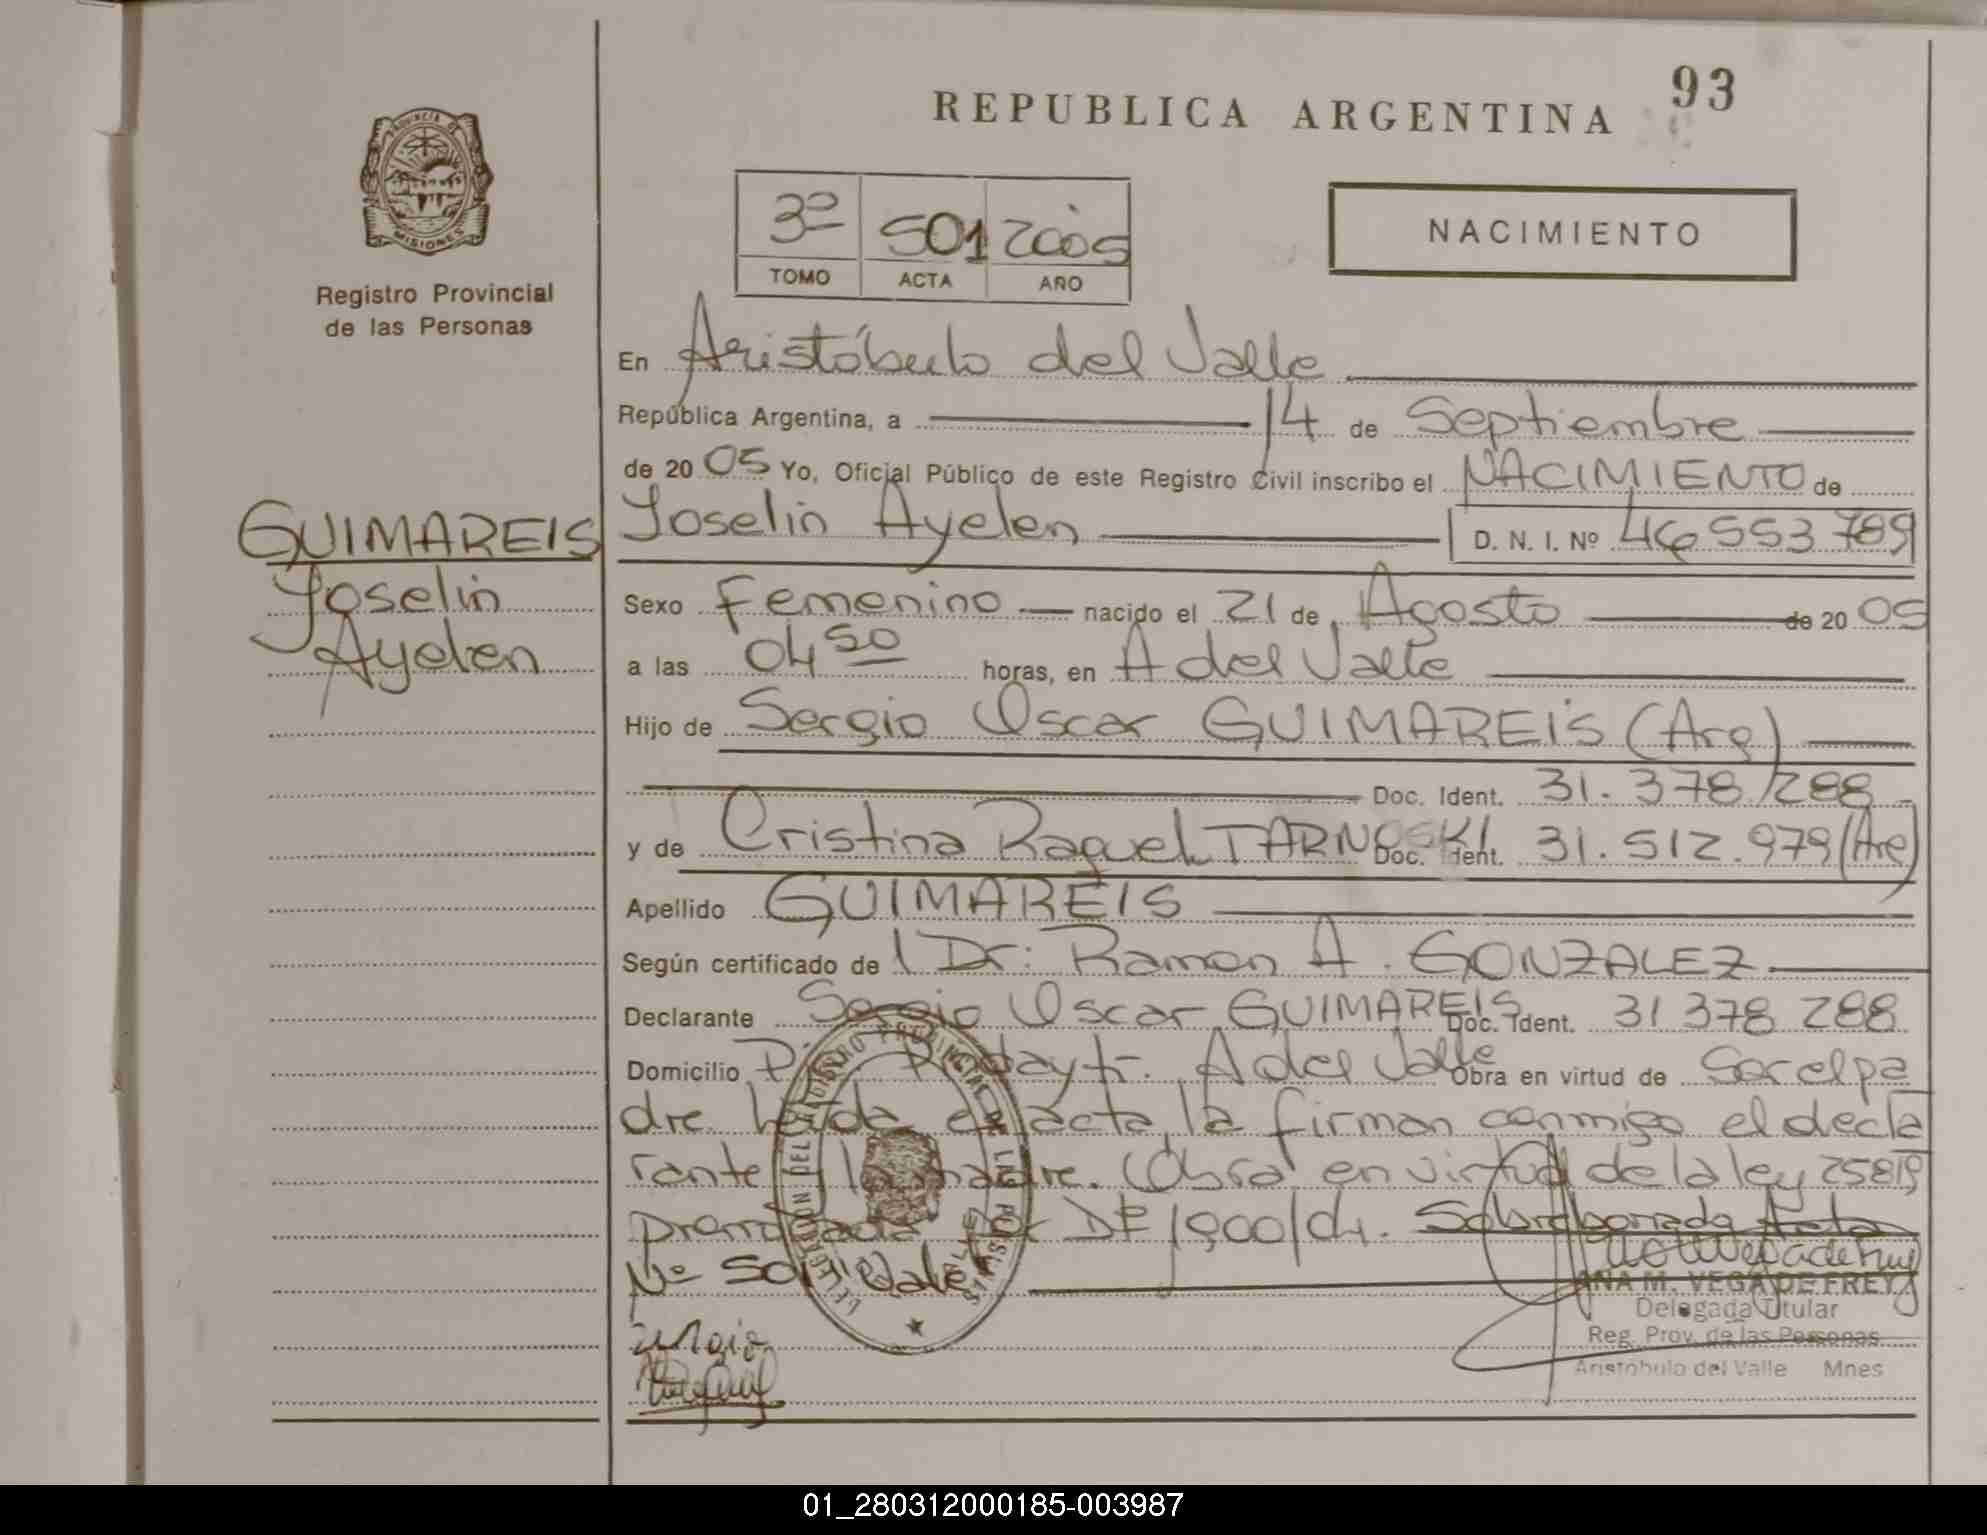 93
REPUBLICA ARGENTINA
PROVINCIA DE
MISIONES
Registro Provincial
de las Personas
3º 501 2005
TOMO ACTA AÑO
NACIMIENTO
En Aristóbulo del Valle
República Argentina, a 14 de Septiembre
de 20 05 Yo, Oficial Público de este Registro Civil inscribo el NACIMIENTO de
GUIMAREIS
Yoselin
Ayelen
Yoselin Ayelen D. N. I. Nº 46 553 789
Sexo Femenino nacido el 21 de Agosto de 20 05
a las 04 50 horas, en A del Valle
Hijo de Sergio Oscar GUIMAREIS (Arg)
Doc. Ident. 31.378.288
y de Cristina Raquel TARNOSKI Doc. Ident. 31.512.979 (Arg)
Apellido GUIMAREIS
Según certificado de Dr: Ramon A. GONZALEZ
Declarante Sergio Oscar GUIMAREIS Doc. Ident. 31 378 288
Domicilio A del Valle Obra en virtud de Ser el pa
dre Leida el acta, la firman conmigo el decla
rante y la madre. Obra en virtud de la ley 25819
por D 1900/04. Sobreborrado Acta
Nº 501 Vale
Sergio
ANA M. VEGA DE FREY
Delegada Titular
Reg. Prov. de las Personas
Aristóbulo del Valle Mnes
01_280312000185-003987